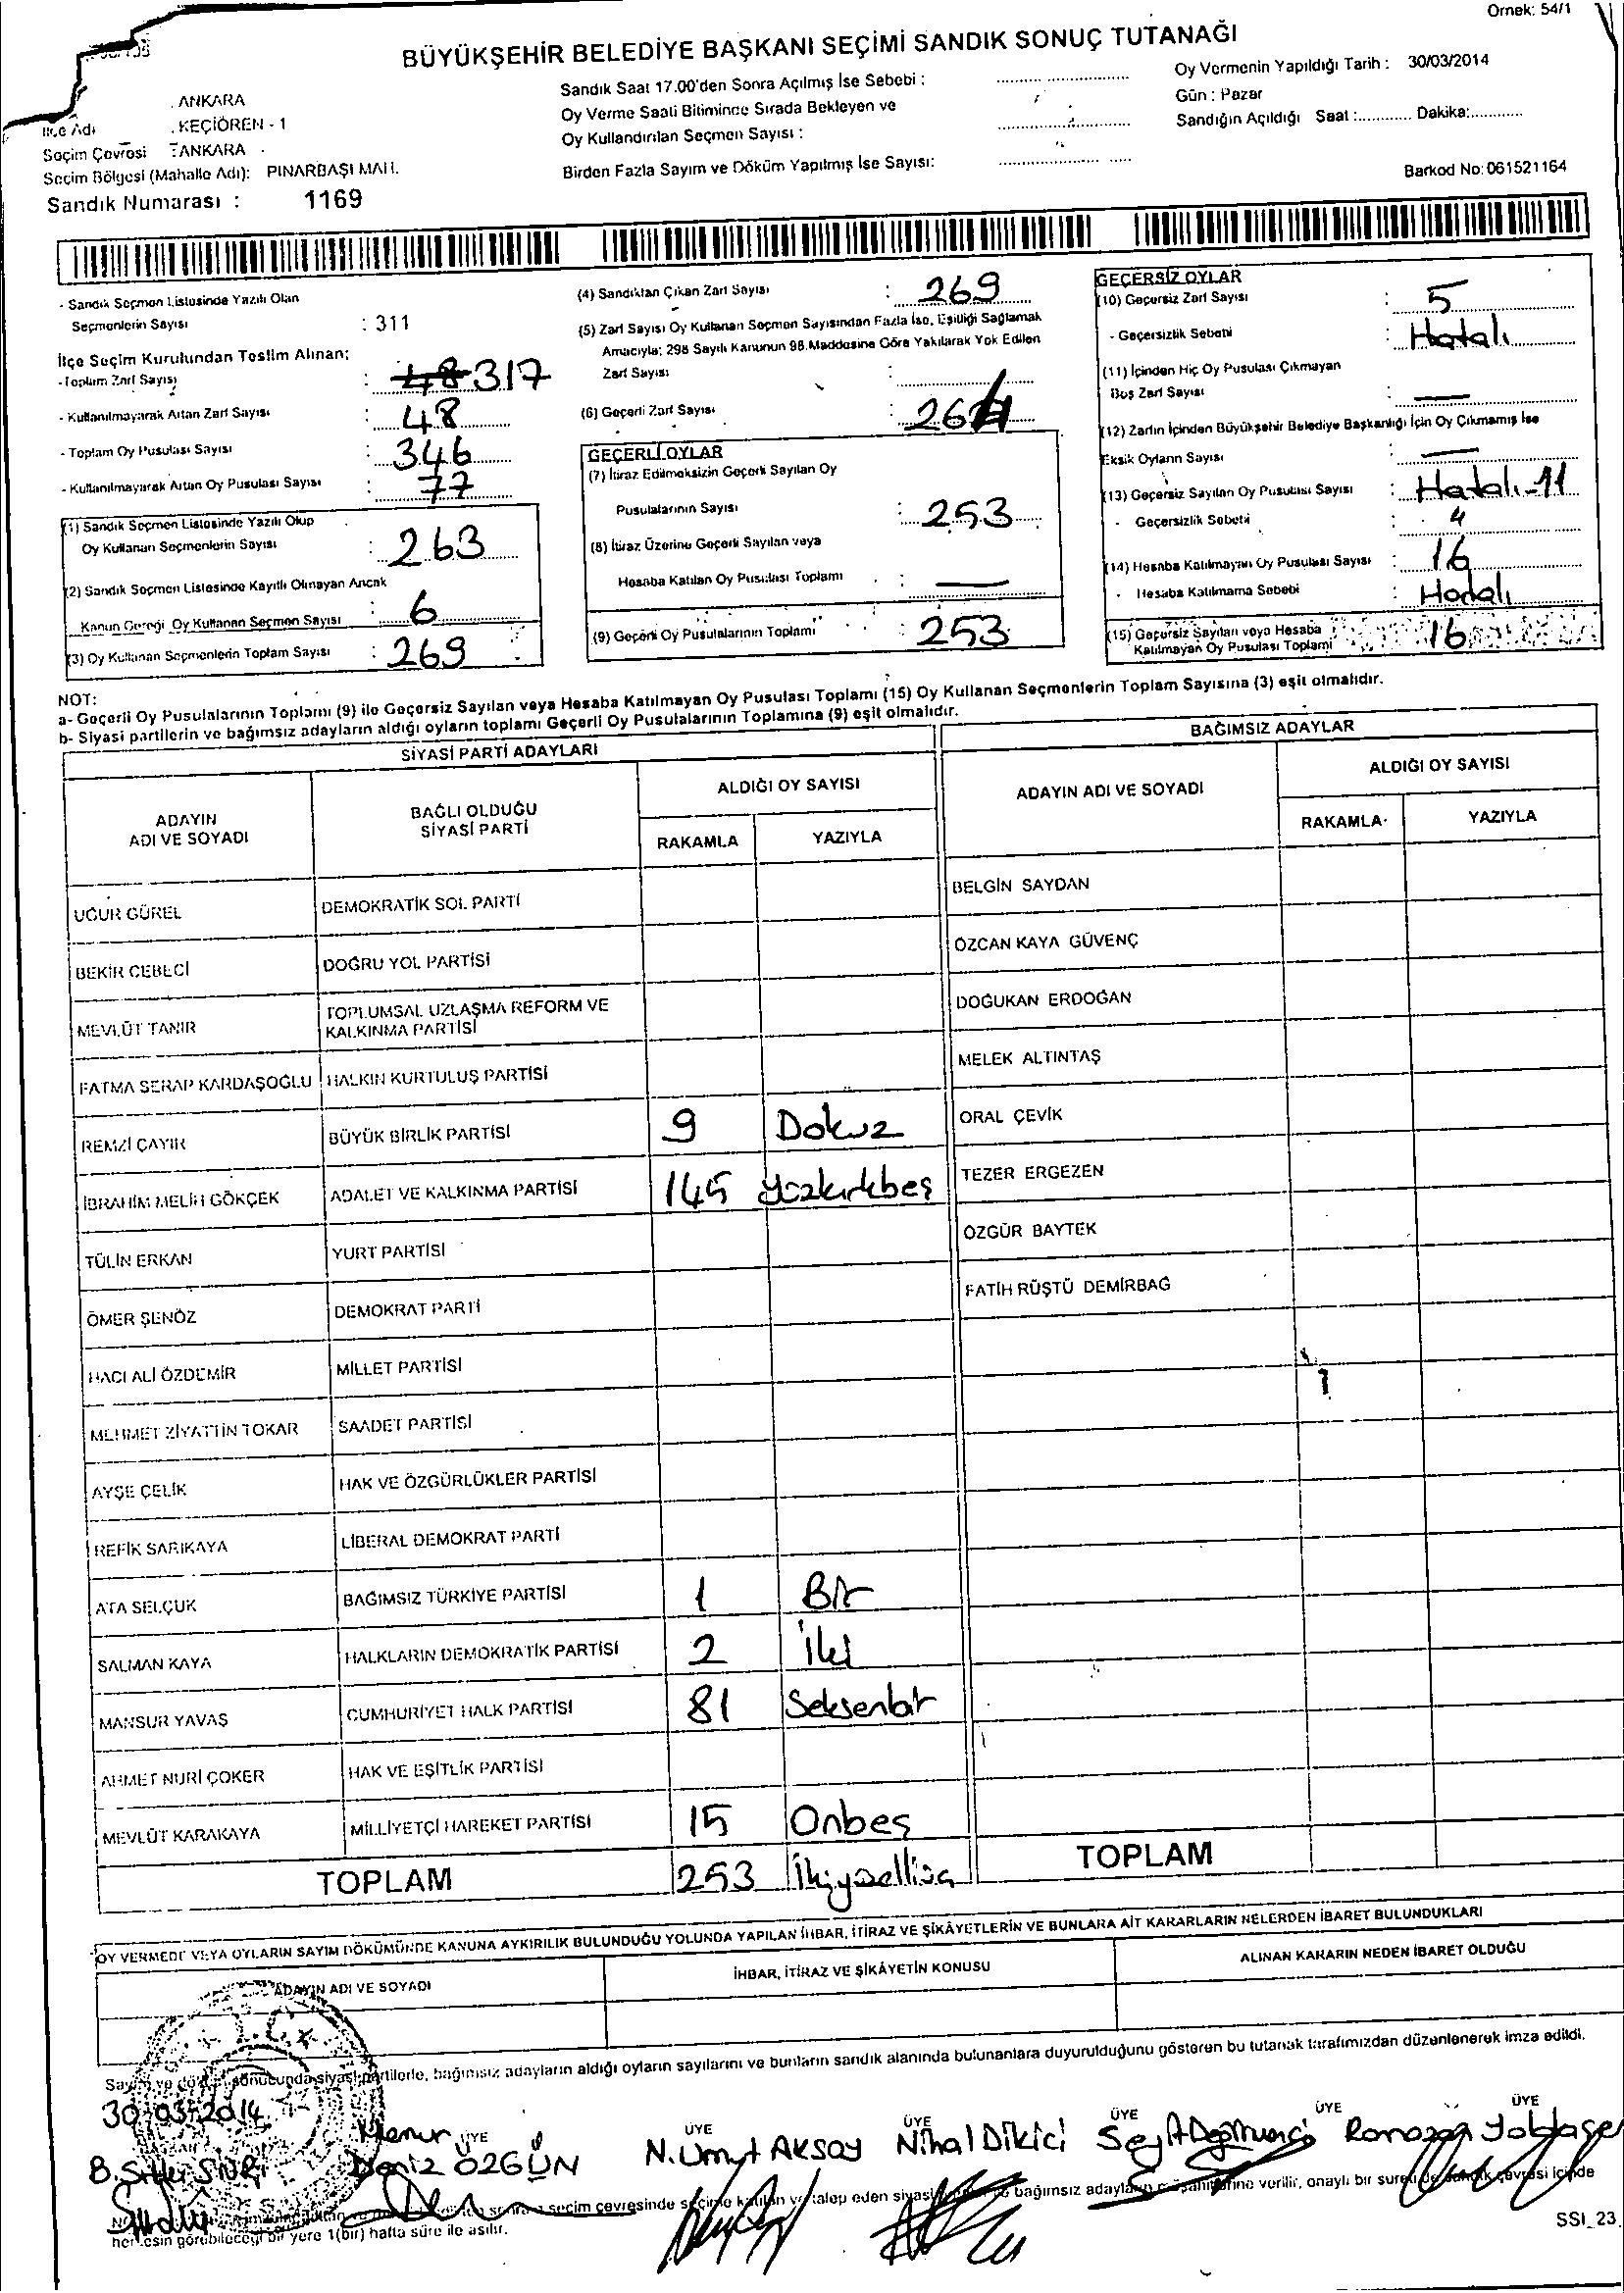 Örnek: 54/1
BÜYÜKŞEHİR BELEDİYE BAŞKANI SEÇİMİ SANDIK SONUÇ TUTANAĞI
ANKARA
İlçe Adı : KEÇİÖREN - 1
Seçim Çevresi : ANKARA
Seçim Bölgesi (Mahalle Adı): PINARBAŞI MAH.
Sandık Numarası : 1169
Sandık Saat 17.00'den Sonra Açılmış İse Sebebi :
Oy Verme Saati Bitiminde Sırada Bekleyen ve
Oy Kullandırılan Seçmen Sayısı :
Birden Fazla Sayım ve Döküm Yapılmış İse Sayısı:
Oy Vermenin Yapıldığı Tarih : 30/03/2014
Gün : Pazar
Sandığın Açıldığı Saat :............ Dakika:............
Barkod No: 061521164
- Sandık Seçmen Listesinde Yazılı Olan
Seçmenlerin Sayısı : 311
İlçe Seçim Kurulundan Teslim Alınan;
- Toplam Zarf Sayısı : 48 317
- Kullanılmayarak Artan Zarf Sayısı : 48
- Toplam Oy Pusulası Sayısı : 346
- Kullanılmayarak Artan Oy Pusulası Sayısı : 77
(1) Sandık Seçmen Listesinde Yazılı Olup
Oy Kullanan Seçmenlerin Sayısı : 263
(2) Sandık Seçmen Listesinde Kayıtlı Olmayan Ancak
Kanun Gereği Oy Kullanan Seçmen Sayısı : 6
(3) Oy Kullanan Seçmenlerin Toplam Sayısı : 269
(4) Sandıktan Çıkan Zarf Sayısı : 269
(5) Zarf Sayısı Oy Kullanan Seçmen Sayısından Fazla İse, Eşitliği Sağlamak
Amacıyla; 298 Sayılı Kanunun 98.Maddesine Göre Yakılarak Yok Edilen
Zarf Sayısı :
(6) Geçerli Zarf Sayısı : 264
GEÇERLİ OYLAR
(7) İtiraz Edilmeksizin Geçerli Sayılan Oy
Pusulalarının Sayısı : 253
(8) İtiraz Üzerine Geçerli Sayılan veya
Hesaba Katılan Oy Pusulası Toplamı : —
(9) Geçerli Oy Pusulalarının Toplamı : 253
GEÇERSİZ OYLAR
(10) Geçersiz Zarf Sayısı : 5
- Geçersizlik Sebebi : Hatalı
(11) İçinden Hiç Oy Pusulası Çıkmayan
Boş Zarf Sayısı : —
(12) Zarfın İçinden Büyükşehir Belediye Başkanlığı İçin Oy Çıkmamış İse
Eksik Oyların Sayısı : —
(13) Geçersiz Sayılan Oy Pusulası Sayısı : Hatalı-11
- Geçersizlik Sebebi : 4
(14) Hesaba Katılmayan Oy Pusulası Sayısı : 16
- Hesaba Katılmama Sebebi : Hatalı
(15) Geçersiz Sayılan veya Hesaba
Katılmayan Oy Pusulası Toplamı : 16
NOT:
a- Geçerli Oy Pusulalarının Toplamı (9) ile Geçersiz Sayılan veya Hesaba Katılmayan Oy Pusulası Toplamı (15) Oy Kullanan Seçmenlerin Toplam Sayısına (3) eşit olmalıdır.
b- Siyasi partilerin ve bağımsız adayların aldığı oyların toplamı Geçerli Oy Pusulalarının Toplamına (9) eşit olmalıdır.
SİYASİ PARTİ ADAYLARI
ADAYIN ADI VE SOYADI BAĞLI OLDUĞU SİYASİ PARTİ ALDIĞI OY SAYISI
RAKAMLA YAZIYLA
UĞUR GÜREL DEMOKRATİK SOL PARTİ
BEKİR CEBECİ DOĞRU YOL PARTİSİ
MEVLÜT TANIR TOPLUMSAL UZLAŞMA REFORM VE KALKINMA PARTİSİ
FATMA SERAP KARDAŞOĞLU HALKIN KURTULUŞ PARTİSİ
REMZİ ÇAYIR BÜYÜK BİRLİK PARTİSİ 9 Dokuz
İBRAHİM MELİH GÖKÇEK ADALET VE KALKINMA PARTİSİ 145 Yüzkırkbeş
TÜLİN ERKAN YURT PARTİSİ
ÖMER ŞENÖZ DEMOKRAT PARTİ
HACI ALİ ÖZDEMİR MİLLET PARTİSİ
MEHMET ZİYATTİN TOKAR SAADET PARTİSİ
AYŞE ÇELİK HAK VE ÖZGÜRLÜKLER PARTİSİ
REFİK SARIKAYA LİBERAL DEMOKRAT PARTİ
ATA SELÇUK BAĞIMSIZ TÜRKİYE PARTİSİ 1 Bir
SALMAN KAYA HALKLARIN DEMOKRATİK PARTİSİ 2 İki
MANSUR YAVAŞ CUMHURİYET HALK PARTİSİ 81 Seksenbir
AHMET NURİ ÇOKER HAK VE EŞİTLİK PARTİSİ
MEVLÜT KARAKAYA MİLLİYETÇİ HAREKET PARTİSİ 15 Onbeş
TOPLAM 253 İkiyüzelliüç
BAĞIMSIZ ADAYLAR
ADAYIN ADI VE SOYADI ALDIĞI OY SAYISI
RAKAMLA YAZIYLA
BELGİN SAYDAN
ÖZCAN KAYA GÜVENÇ
DOĞUKAN ERDOĞAN
MELEK ALTINTAŞ
ORAL ÇEVİK
TEZER ERGEZEN
ÖZGÜR BAYTEK
FATİH RÜŞTÜ DEMİRBAĞ
TOPLAM
OY VERMEDE VEYA OYLARIN SAYIM DÖKÜMÜNDE KANUNA AYKIRILIK BULUNDUĞU YOLUNDA YAPILAN İHBAR, İTİRAZ VE ŞİKÂYETLERİN VE BUNLARA AİT KARARLARIN NELERDEN İBARET BULUNDUKLARI
ADAYIN ADI VE SOYADI İHBAR, İTİRAZ VE ŞİKÂYETİN KONUSU ALINAN KARARIN NEDEN İBARET OLDUĞU
Sayım ve döküm sonucunda siyasi partilerle, bağımsız adayların aldığı oyların sayılarını ve bunların sandık alanında bulunanlara duyurulduğunu gösteren bu tutanak tarafımızdan düzenlenerek imza edildi.
30.03.2014
Memur ÜYE ÜYE ÜYE ÜYE ÜYE ÜYE
Deniz ÖZGÜN N. Umut AKSOY Nihal Dikici Seyit Değirmenci Ramazan Yoldaşer
seçim çevresinde seçime katılan ve talep eden siyasi bağımsız adayların verilir, onaylı bir sureti de sandık çevresi içinde
herkesin görebileceği bir yere 1(bir) hafta süre ile asılır.
SSI_23.